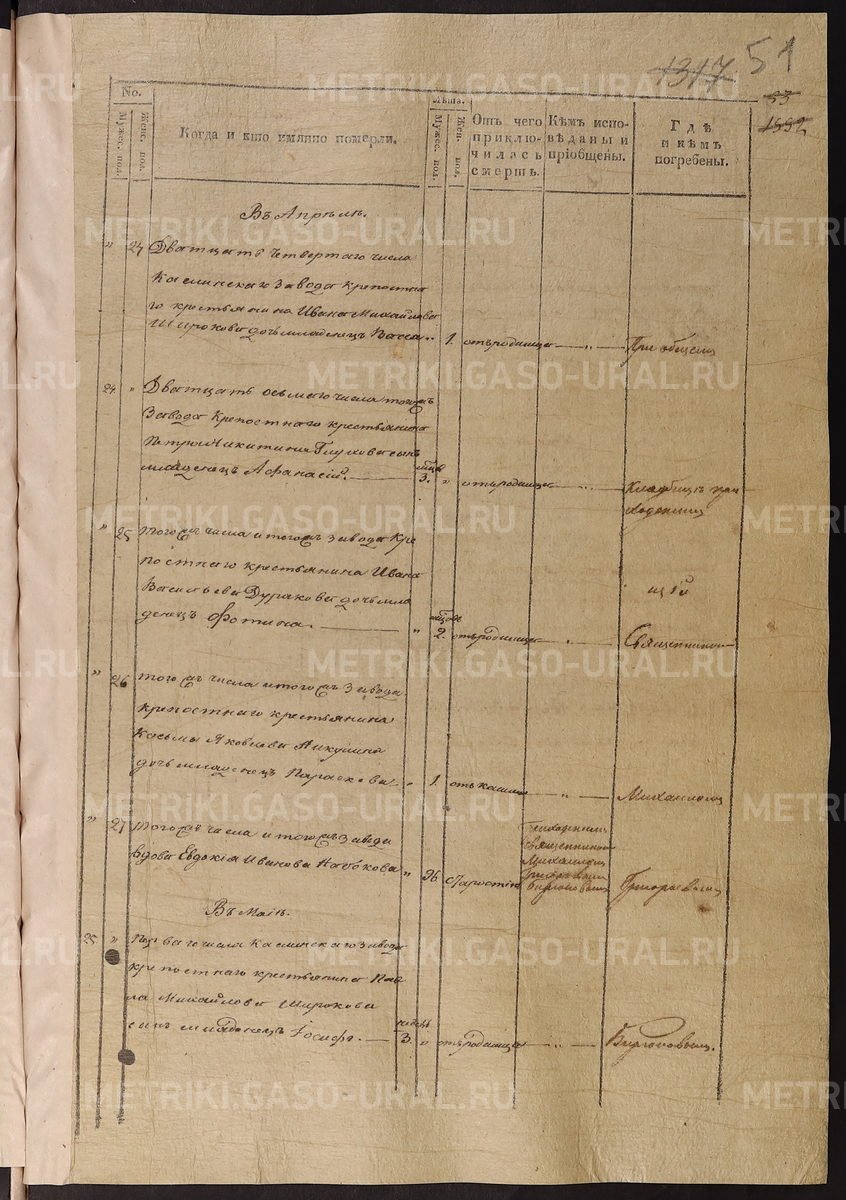 1317 51
53
1552
No.
Мужес. пол.
Женс. пол.
Когда и кто имянно померли.
Лѣта.
Мужес. пол.
Жен. пол.
Отъ чего приключилась смерть.
Кѣмъ исповѣданы и пріобщены.
Гдѣ и кѣмъ погребены.
Въ Апрѣлѣ.
" 24 Дватцать четвертаго числа
Каслинскаго завода крепостна
го крестьянина Ивана Михайлова
Широкова дочь младенецъ Васса " 1. отъ родимца " При общемъ
24 " Дватцать осьмаго числа тогожъ
завода крепостнаго крестьянина
Петра Никитина Глухова сынъ
младенецъ Афанасій. 3. " отъ родимца " кладбищѣ при
ходскимъ
" 25 тогожъ числа и тогожъ завода кре
постнаго крестьянина Ивана
Васильева Дуракова дочь мла
денецъ Фотина. " 2. отъ родимца " Священником
" 26 тогожъ числа и тогожъ завода
крепостнаго крестьянина
Косьмы Яковлева Аикулина
дочь младенецъ Параскева " 1. отъ кашля " Михаиломъ
" 27 тогожъ числа и тогожъ завода
вдова Евдокія Иванова Набокова " старости
Священником
Михаиломъ
Григорьевымъ
Бирюковымъ
Григорьевымъ
Въ Маіѣ.
25 " Перваго числа Каслинскаго завода
крепостнаго крестьянина Пав
ла Михайлова Широкова
сынъ младенецъ Іосифъ. недѣль 3. " отъ родимца " Бирюковымъ.
METRIKI.GASO-URAL.RU